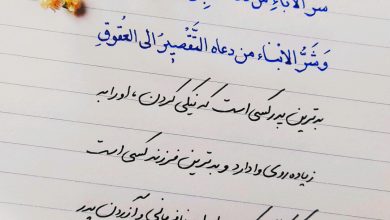 شَرُّ الآباءِ مَن دَعاهُ
وَ شَرُّ الأبناء من دعاه التَّقْصیرُ الی العُقوقِ
بدترین پدر کسی است که نیکی کردن، او را به
زیاده روی وا دارد و بدترین فرزند کسی است
نافرمانی و آزردن پدر